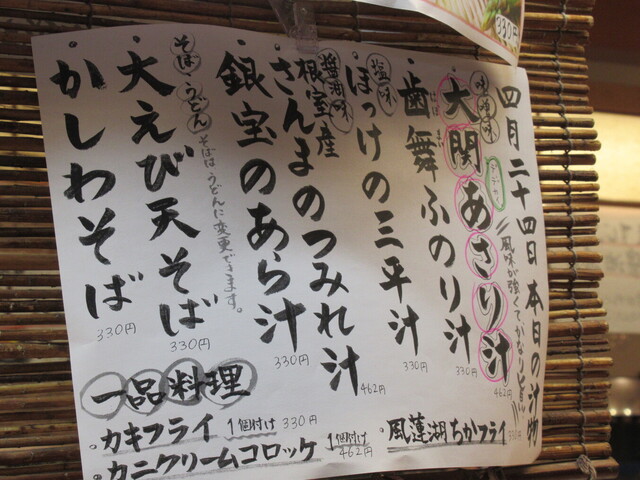 330円
四月二十四日 本日の汁物
風味が強くてかなり旨い
味噌味
大関あさり汁
462円
歯舞ふのり汁
330円
塩味
ほっけの三平汁
330円
醤油味
根室産
さんまのつみれ汁
462円
銀宝のあら汁
330円
そば・うどん
そばはうどんに変更できます。
大えび天そば
330円
かしわそば
330円
一品料理
・カキフライ 1個付け 330円
・カニクリームコロッケ 1個付け 462円
・風蓮湖ちかフライ 330円